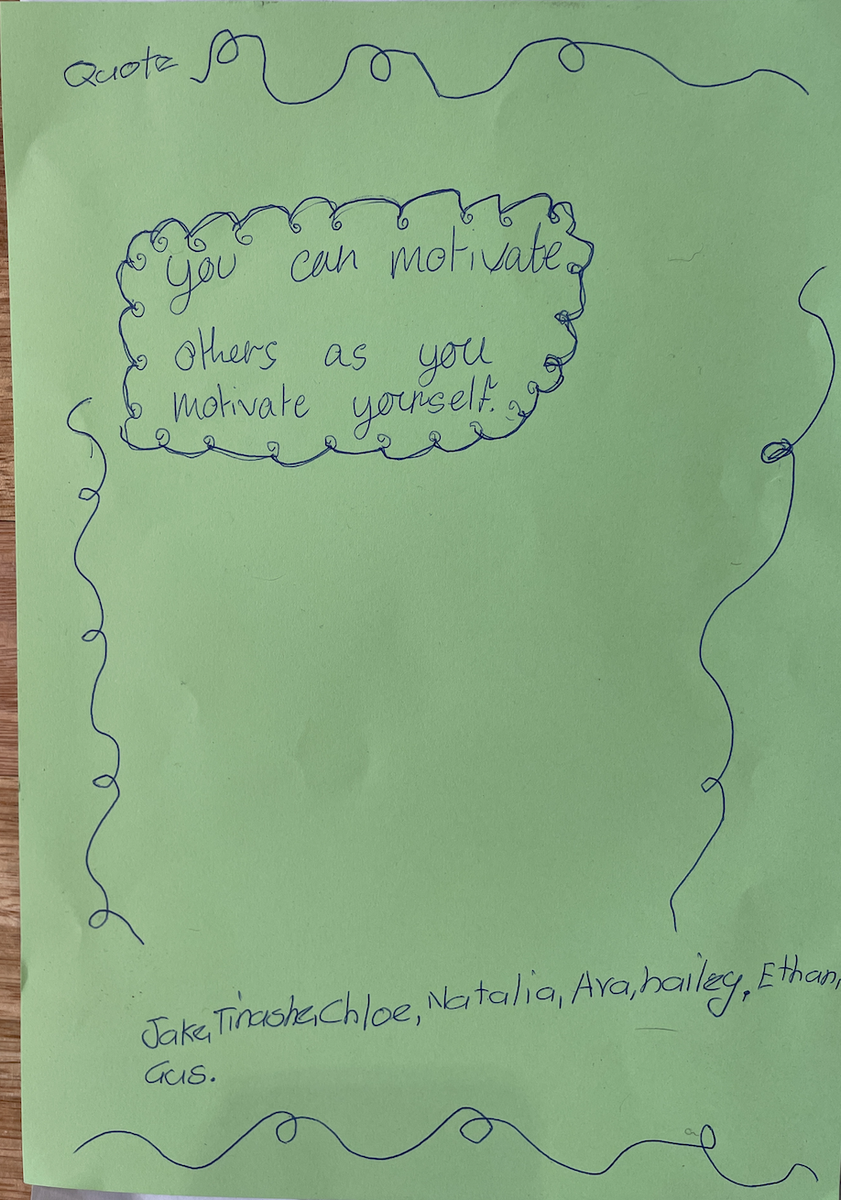 Quote
you can motivate
others as you
motivate yourself.
Jake, Tinashe, Chloe, Natalia, Ava, hailey, Ethan,
Gus.